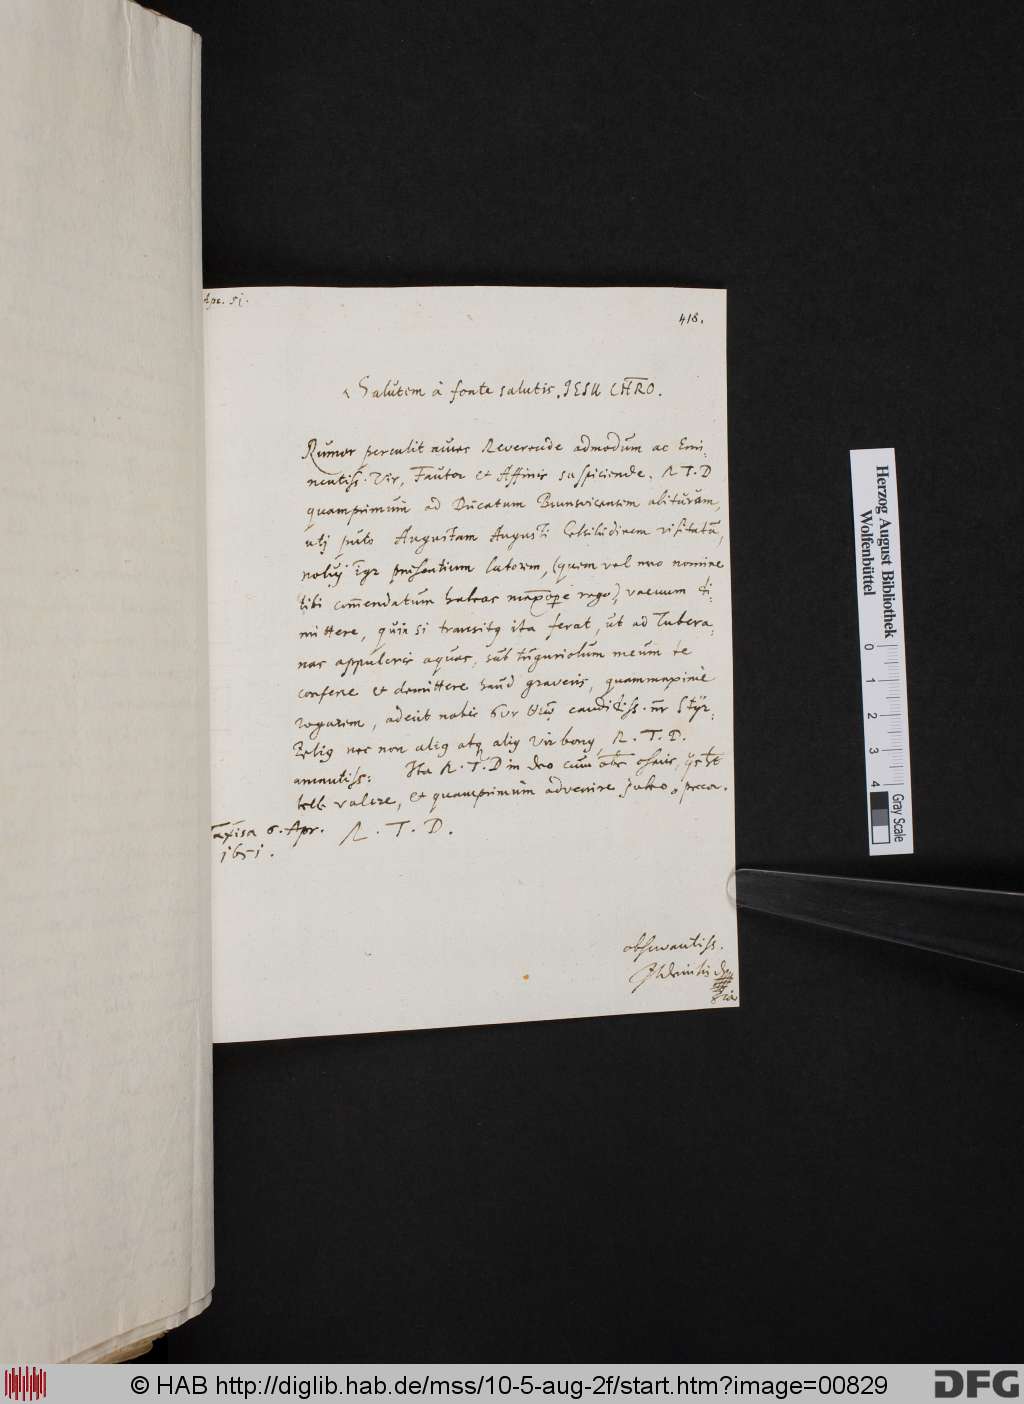 Apr. 51.
418.
Salutem à fonte salutis, JESU CHRO.
Rumor perculit aures Reverende admodum ac Emi-
nentiss. Vir, Fautor et Affinis suspiciende, R T D
quamprimum ad Ducatum Brunsvicensem abituram,
uti puto Augustam Augusti Celsitudinem visitatū,
tibi commendatum habeas rogo) vacuum di-
mittere, quin si transitq ita ferat, ut ad Tubera-
nas appuleris aquas, sub tuguriolum meum te
conferre et demittere haud graveris, quammaxime
rogarem, aderit nobis candidiss. nr Styr-
Zelig nec non aliq atq aliq Vir bonq R. T. D.
amantiss: Ita R. T. D in deo cum
valere, et quamprimum advenire jubeo precor.
6. Apr. R. T. D.
1651.
observantiss.
Herzog August Bibliothek
Wolfenbüttel
0 1 2 3 4
Gray Scale
© HAB http://diglib.hab.de/mss/10-5-aug-2f/start.htm?image=00829
DFG